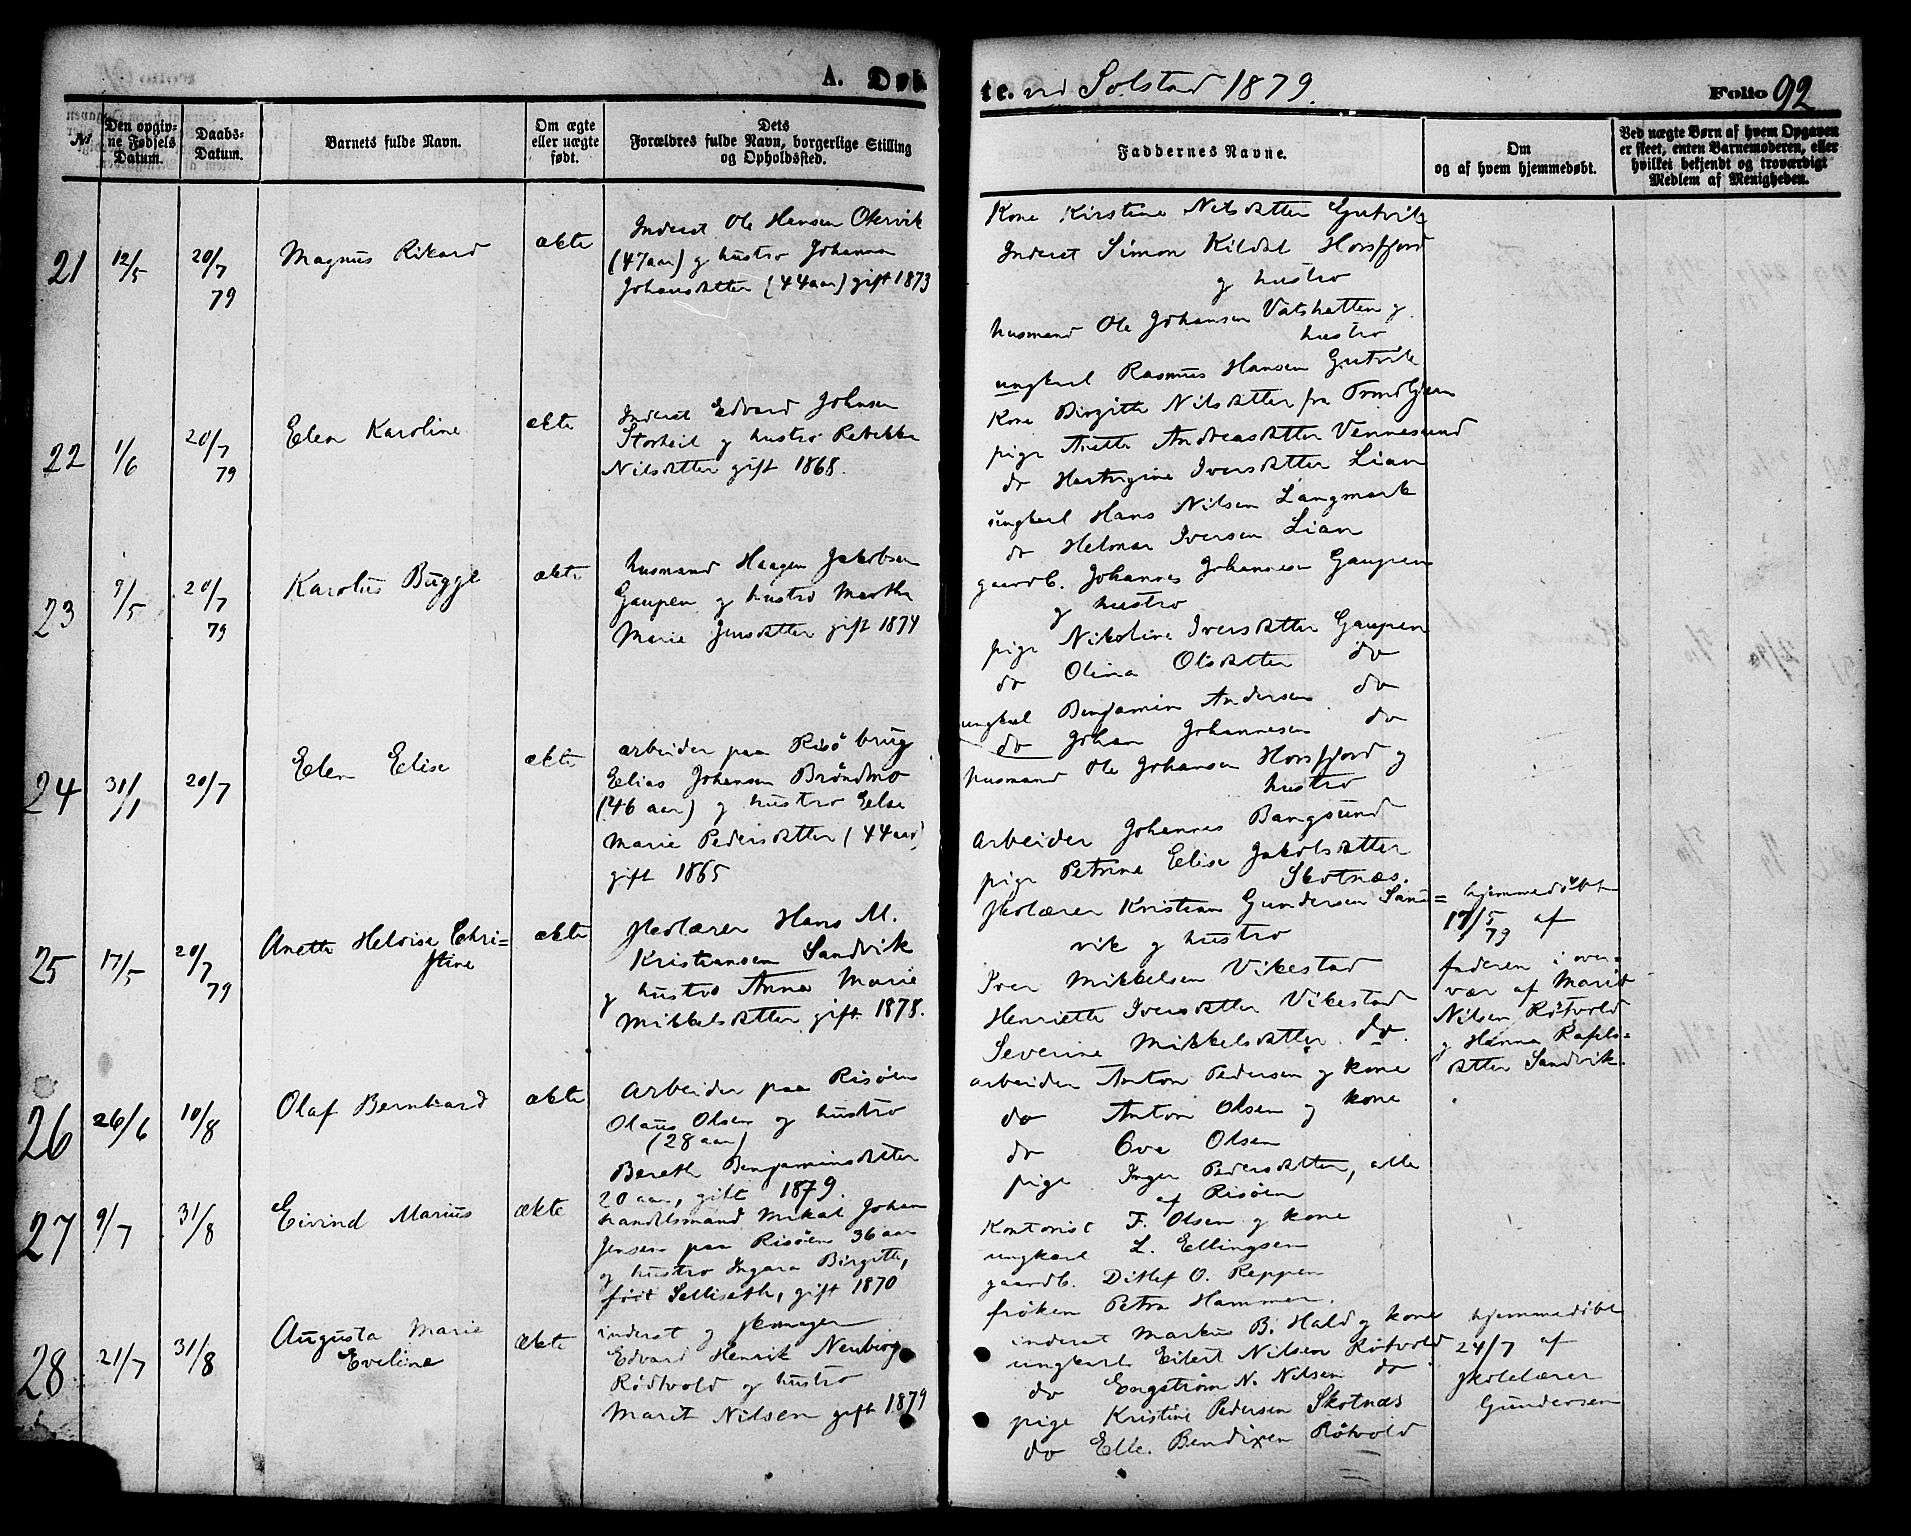 A. Døb
te. ved Solstad 1879.
Folio 92
No
Den opgiv-
ne Fødsels
Datum.
Daabs-
Datum.
Barnets fulde Navn.
Om ægte
eller uægte
født.
Dets
Forældres fulde Navn, borgerlige Stilling
og Opholdssted.
Faddernes Navne.
Om
og af hvem hjemmedøbt.
Ved uægte Børn af hvem Opgaven
er skeet, enten Barnemoderen, eller
hvilket bekjendt og troværdigt
Medlem af Menigheden.
21 12/5 20/7 79 Magnus Rikard ækte
Inderst Ole Hansen Okervik
(47 aar) og hustro Johanna
Johansdatter (44 aar) gift 1873
Kone Kirstine Nilsdatter Gutvik
Inderst Simon Kildal Horsfjord
og hustro
husmand Ole Johansen Valshatten og
hustro
ungkarl Rasmus Hansen Gutvik
22 1/6 20/7 79 Elen Karoline ækte
Inderst Edvard Johnsen
Storheil og hustro Rebekka
Nilsdatter gift 1868.
Kone Birgitte Nilsdatter fra Trondhjem
pige Anette Andreasdatter Vennesund
do Hartvigine Iversdatter Lian
ungkarl Hans Nilsen Langmark
do Helmar Iversen Lian
23 9/5 20/7 79 Karolus Bugge ækte
husmand Haagen Jakobsen
Gaupen og hustro Martha
Marie Jensdatter gift 1874
gaardb. Johannes Johannesen Gaupen
og hustro
pige Nikoline Iversdatter Gaupen
do Olina Olsdatter do
ungkarl Benjamin Andersen do
do Johan Johannesen do
24 31/1 20/7 Elen Elise ækte
arbeider paa Risö brug
Elias Johansen Bröndmo
(46 aar) og hustro Else
Marie Pedersdatter (44 aar)
gift 1865
husmand Ole Johansen Horsfjord og
hustro
Arbeider Johannes Bangsund
pige Petrine Elise Jakobsdatter
Skotnæs.
25 17/5 20/7 79 Anette Heloise Chri=
stine ækte
skolærer Hans M.
Kristiansen Sandvik
og hustro Anna Marie
Mikkelsdatter gift 1878.
skolærer Kristian Gundersen Sand=
vik og hustro
Iver Mikkelsen Vikestad
Henriette Iversdatter Vikestad
Severine Mikkelsdatter do.
hjemmedöbt
17/5 79 af
faderen i over=
vær af Marit
Nilsen Rötvold
og Hanna Rafels=
datter Sandvik.
26 26/6 10/8 Olaf Bernhard ækte
Arbeider paa Risöen
Olaus Olsen og hustro
(28 aar)
Bereth Benjaminsdatter
20 aar, gift 1879.
arbeider Anton Pedersen og kone
do Anton Olsen og kone
do Ove Olsen
pige Inger Pedersdatter, alle
af Risöen
27 9/7 31/8 Eivind Marius ækte
handelsmand Mikal Johan
Jensen paa Risöen 36 aar
og hustro Ingara Birgitte,
födt Selliseth, gift 1870
Kontorist F. Olsen og kone
ungkarl L. Ellingsen
gaardb. Ditlef O. Reppen
fröken Petra Hammer.
28 21/7 31/8 Augusta Marie
Eveline ækte
inderst og skomager
Edvard Henrik Neuberg
Rödtvold og hustro
Marit Nilsen gift 1879
inderst Markus B. Hald og kone
ungkarl Eilert Nilsen Rötvold
do Engström N. Nilsen do
pige Kristine Pedersen Skotnæs
do Elle. Bendixen Rötvold
hjemmedöbt
24/7 af
skolelærer
Gundersen